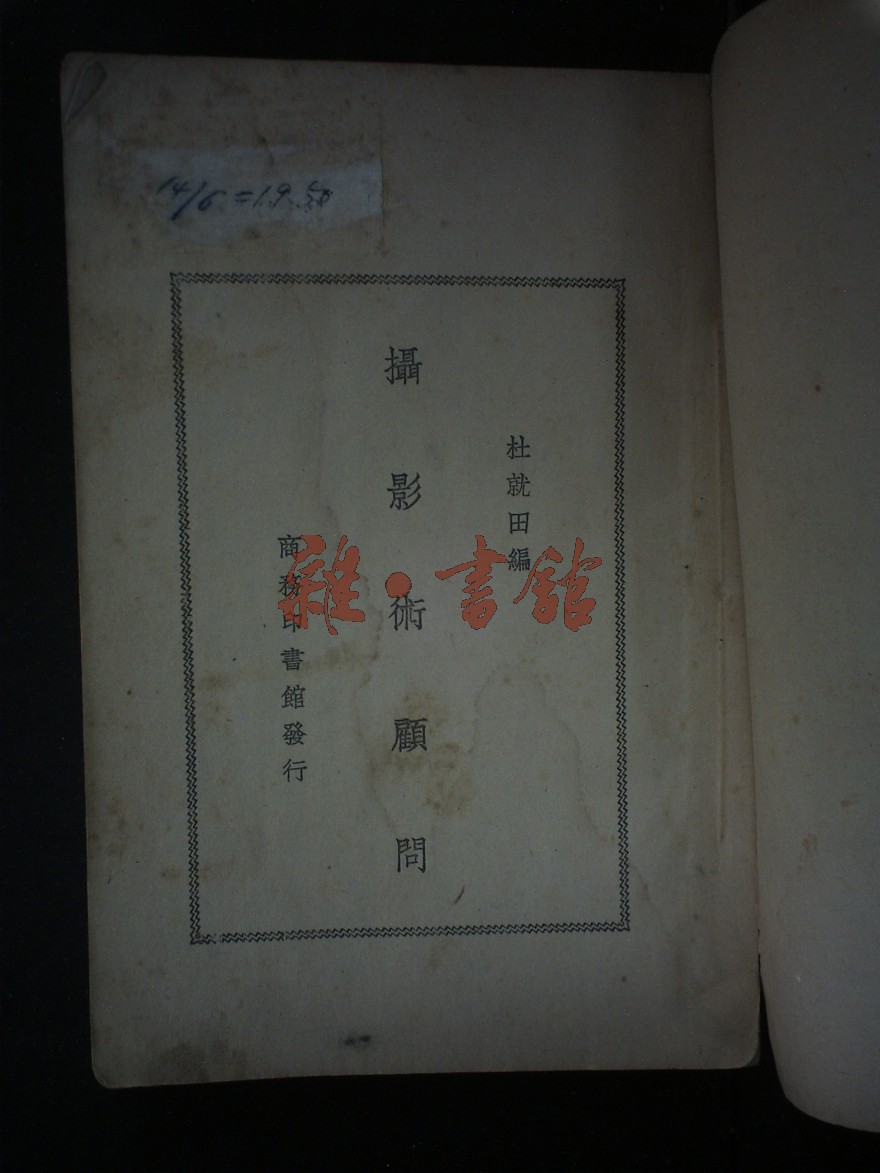 14/6=19.50
杜就田編
攝影術顧問
商務印書館發行
雜·書館